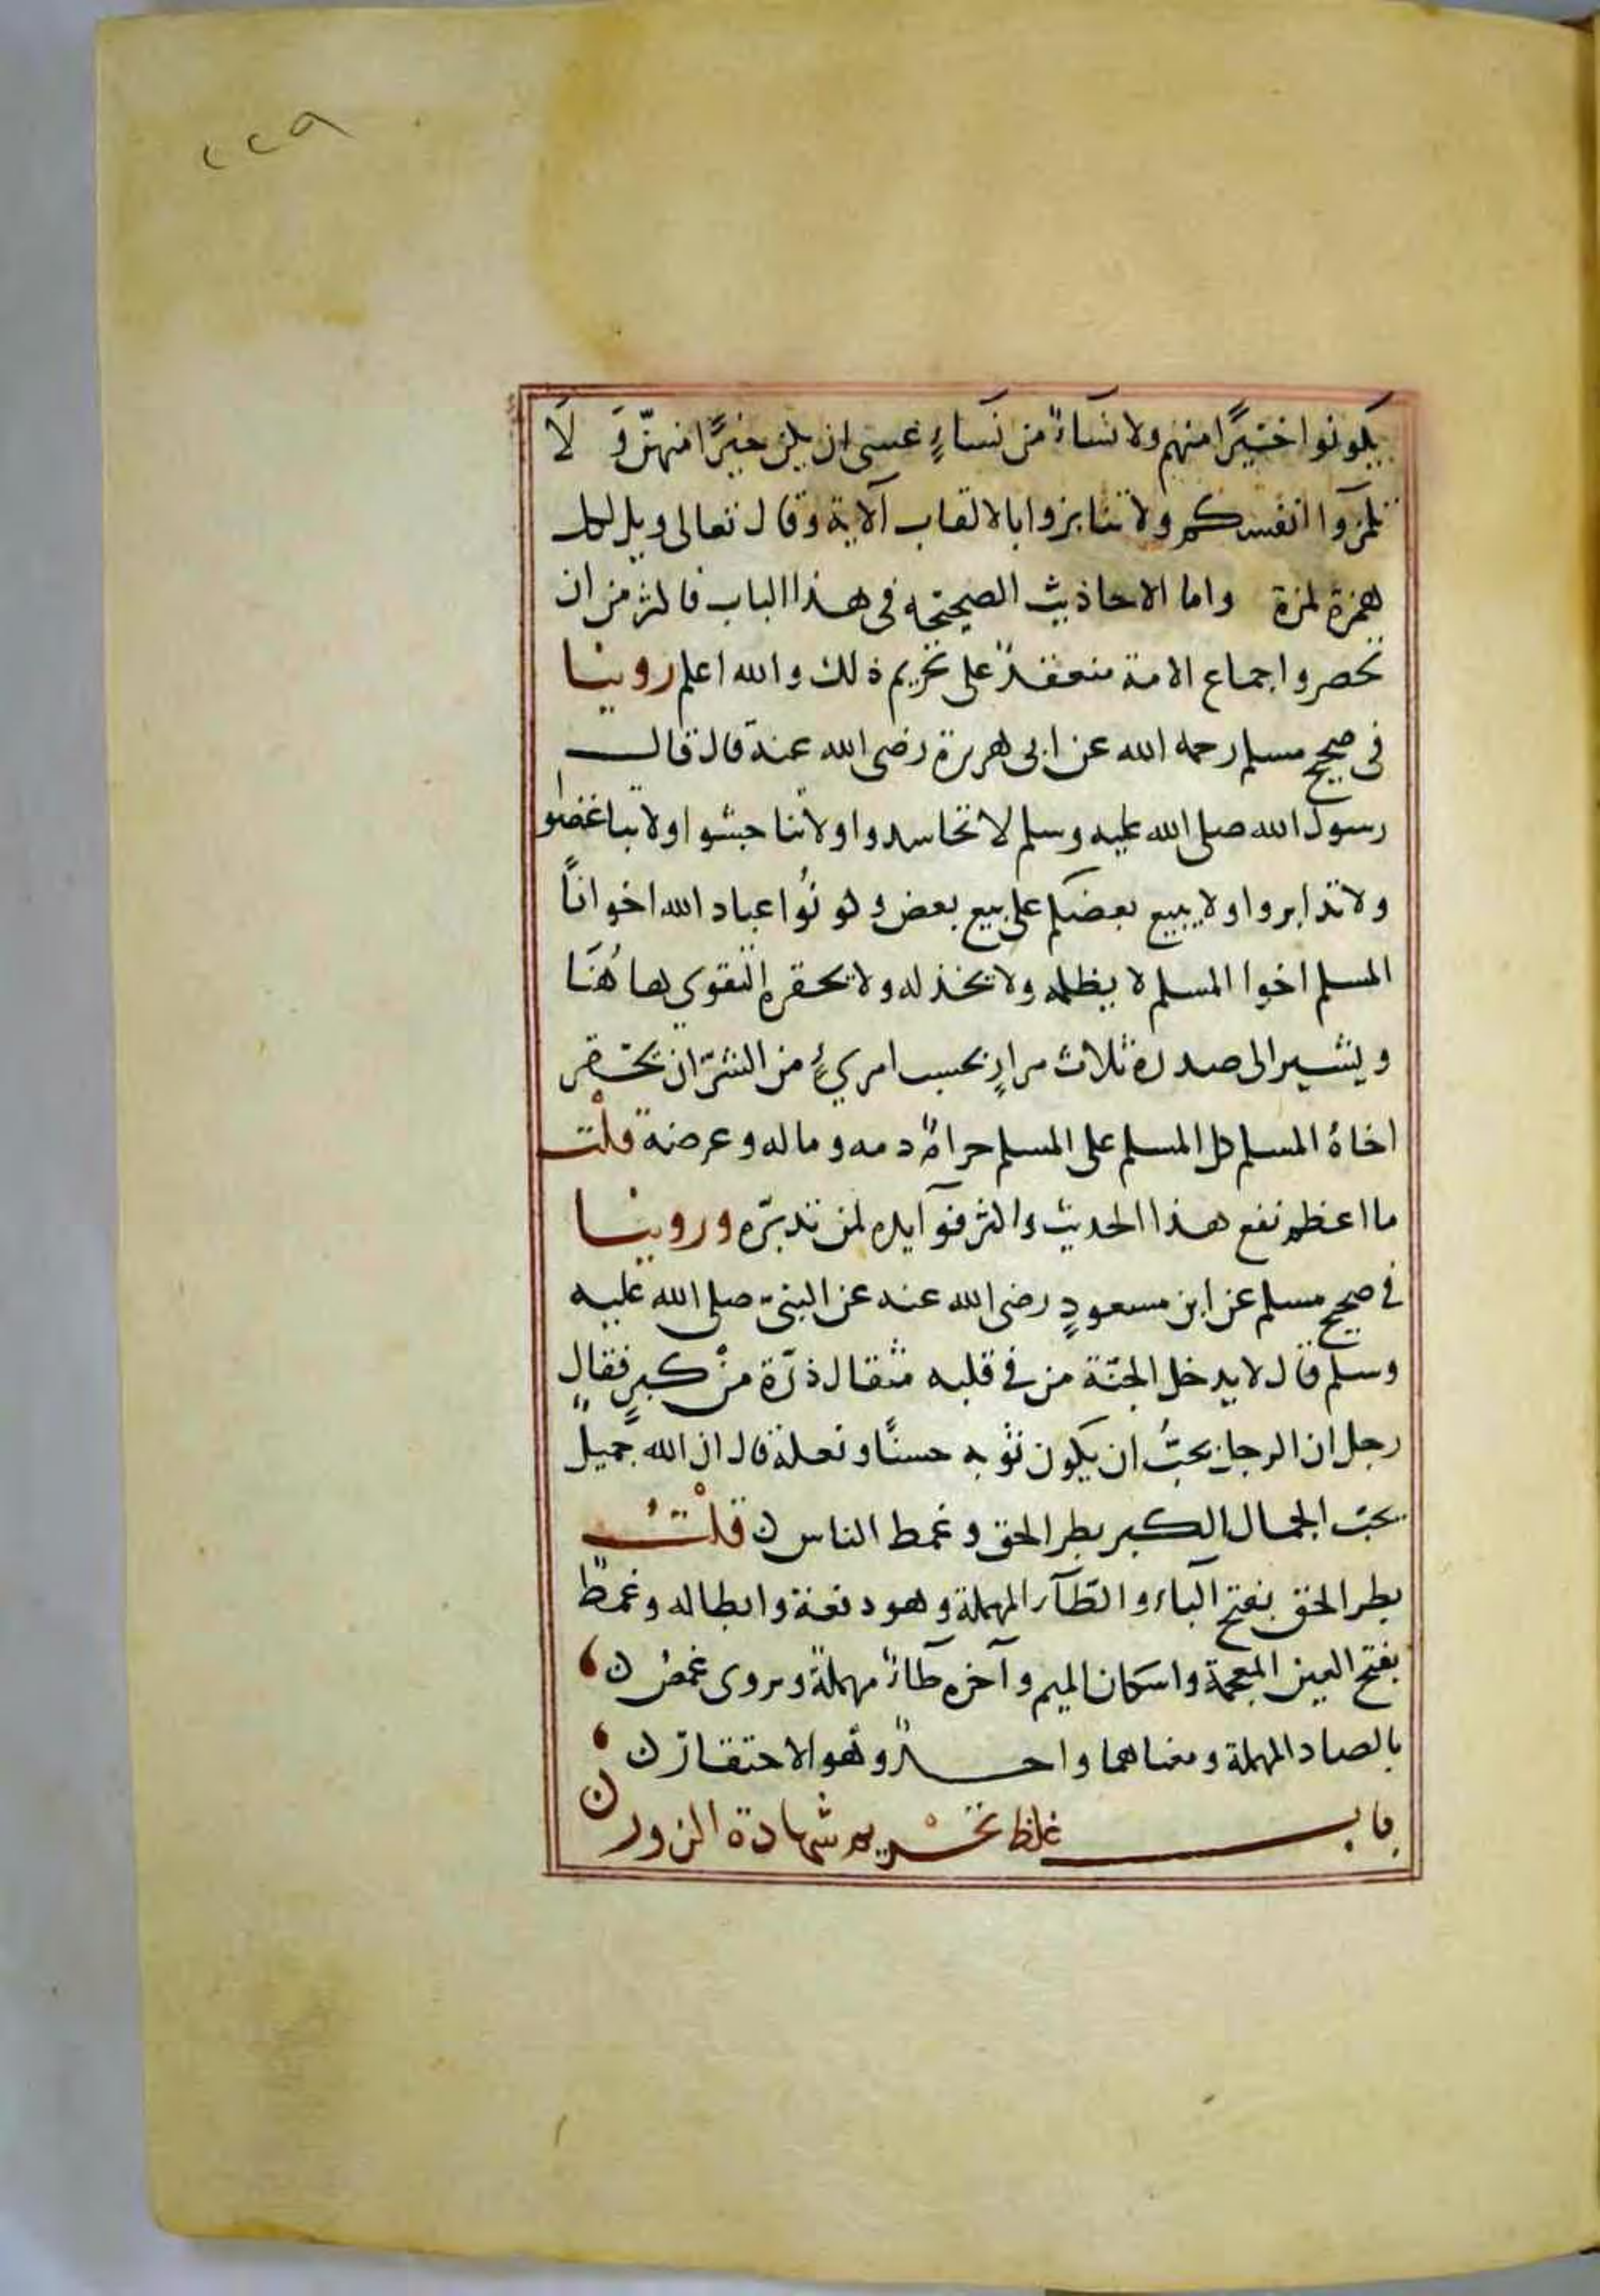 ٢٢٩
يكونوا خيرًا منهم ولا نساءٌ من نساءٍ عسى ان يكن خيرًا منهنّ وَ لَا
تلمزوا انفسكم ولا تنابزوا بالالقاب الآية وقال تعالى ويل لكل
همزة لمزة واما الاحاديث الصحيحة فى هذا الباب فاكثر من ان
تحصر واجماع الامة منعقدٌ على تحريم ذلك والله اعلم روينا
فى صحيح مسلم رحمه الله عن ابى هريرة رضى الله عنه قال قال
رسول الله صلى الله عليه وسلم لا تحاسدوا ولا تناجشوا ولا تباغضوا
ولا تدابروا ولا يبيع بعضكم على بيع بعض وكونُوا عباد الله اخوانًا
المسلم اخوا المسلم لا يظلمه ولا يخذله ولا يحقره التقوى هاهُنَا
ويشير الى صدره ثلاث مرارٍ بحسب امرئٍ من الشرّ ان يحقر
اخاهُ المسلم كل المسلم على المسلم حرامٌ دمه وماله وعرضه قلْت
ما اعظم نفع هذا الحديث واكثر فوآيده لمن تدبّره وروينا
فى صحيح مسلم عن ابن مسعودٍ رضى الله عنه عن النبىّ صلى الله عليه
وسلم قال لا يدخل الجنّة من فى قلبه مثقال ذرّة منْ كبرٍ فقال
رجل ان الرجل يحبُّ ان يكون ثوبه حسنًا ونعله قال ان الله جميلٌ
يحبّ الجمال الكبر بطر الحق وغمط الناس ن قلْتُ
بطر الحق بفتح البآء والطآء المهملة وهو دفعه وابطاله وغمطٌ
بفتح الغين المعجمة واسكان الميم وآخره طآءٌ مهملةٌ ويروى غمصٌ ن
بالصاد المهملة ومعناهما واحدٌ وهو الاحتقار ن
باب غلظ تحْريم شهادة الزور ن